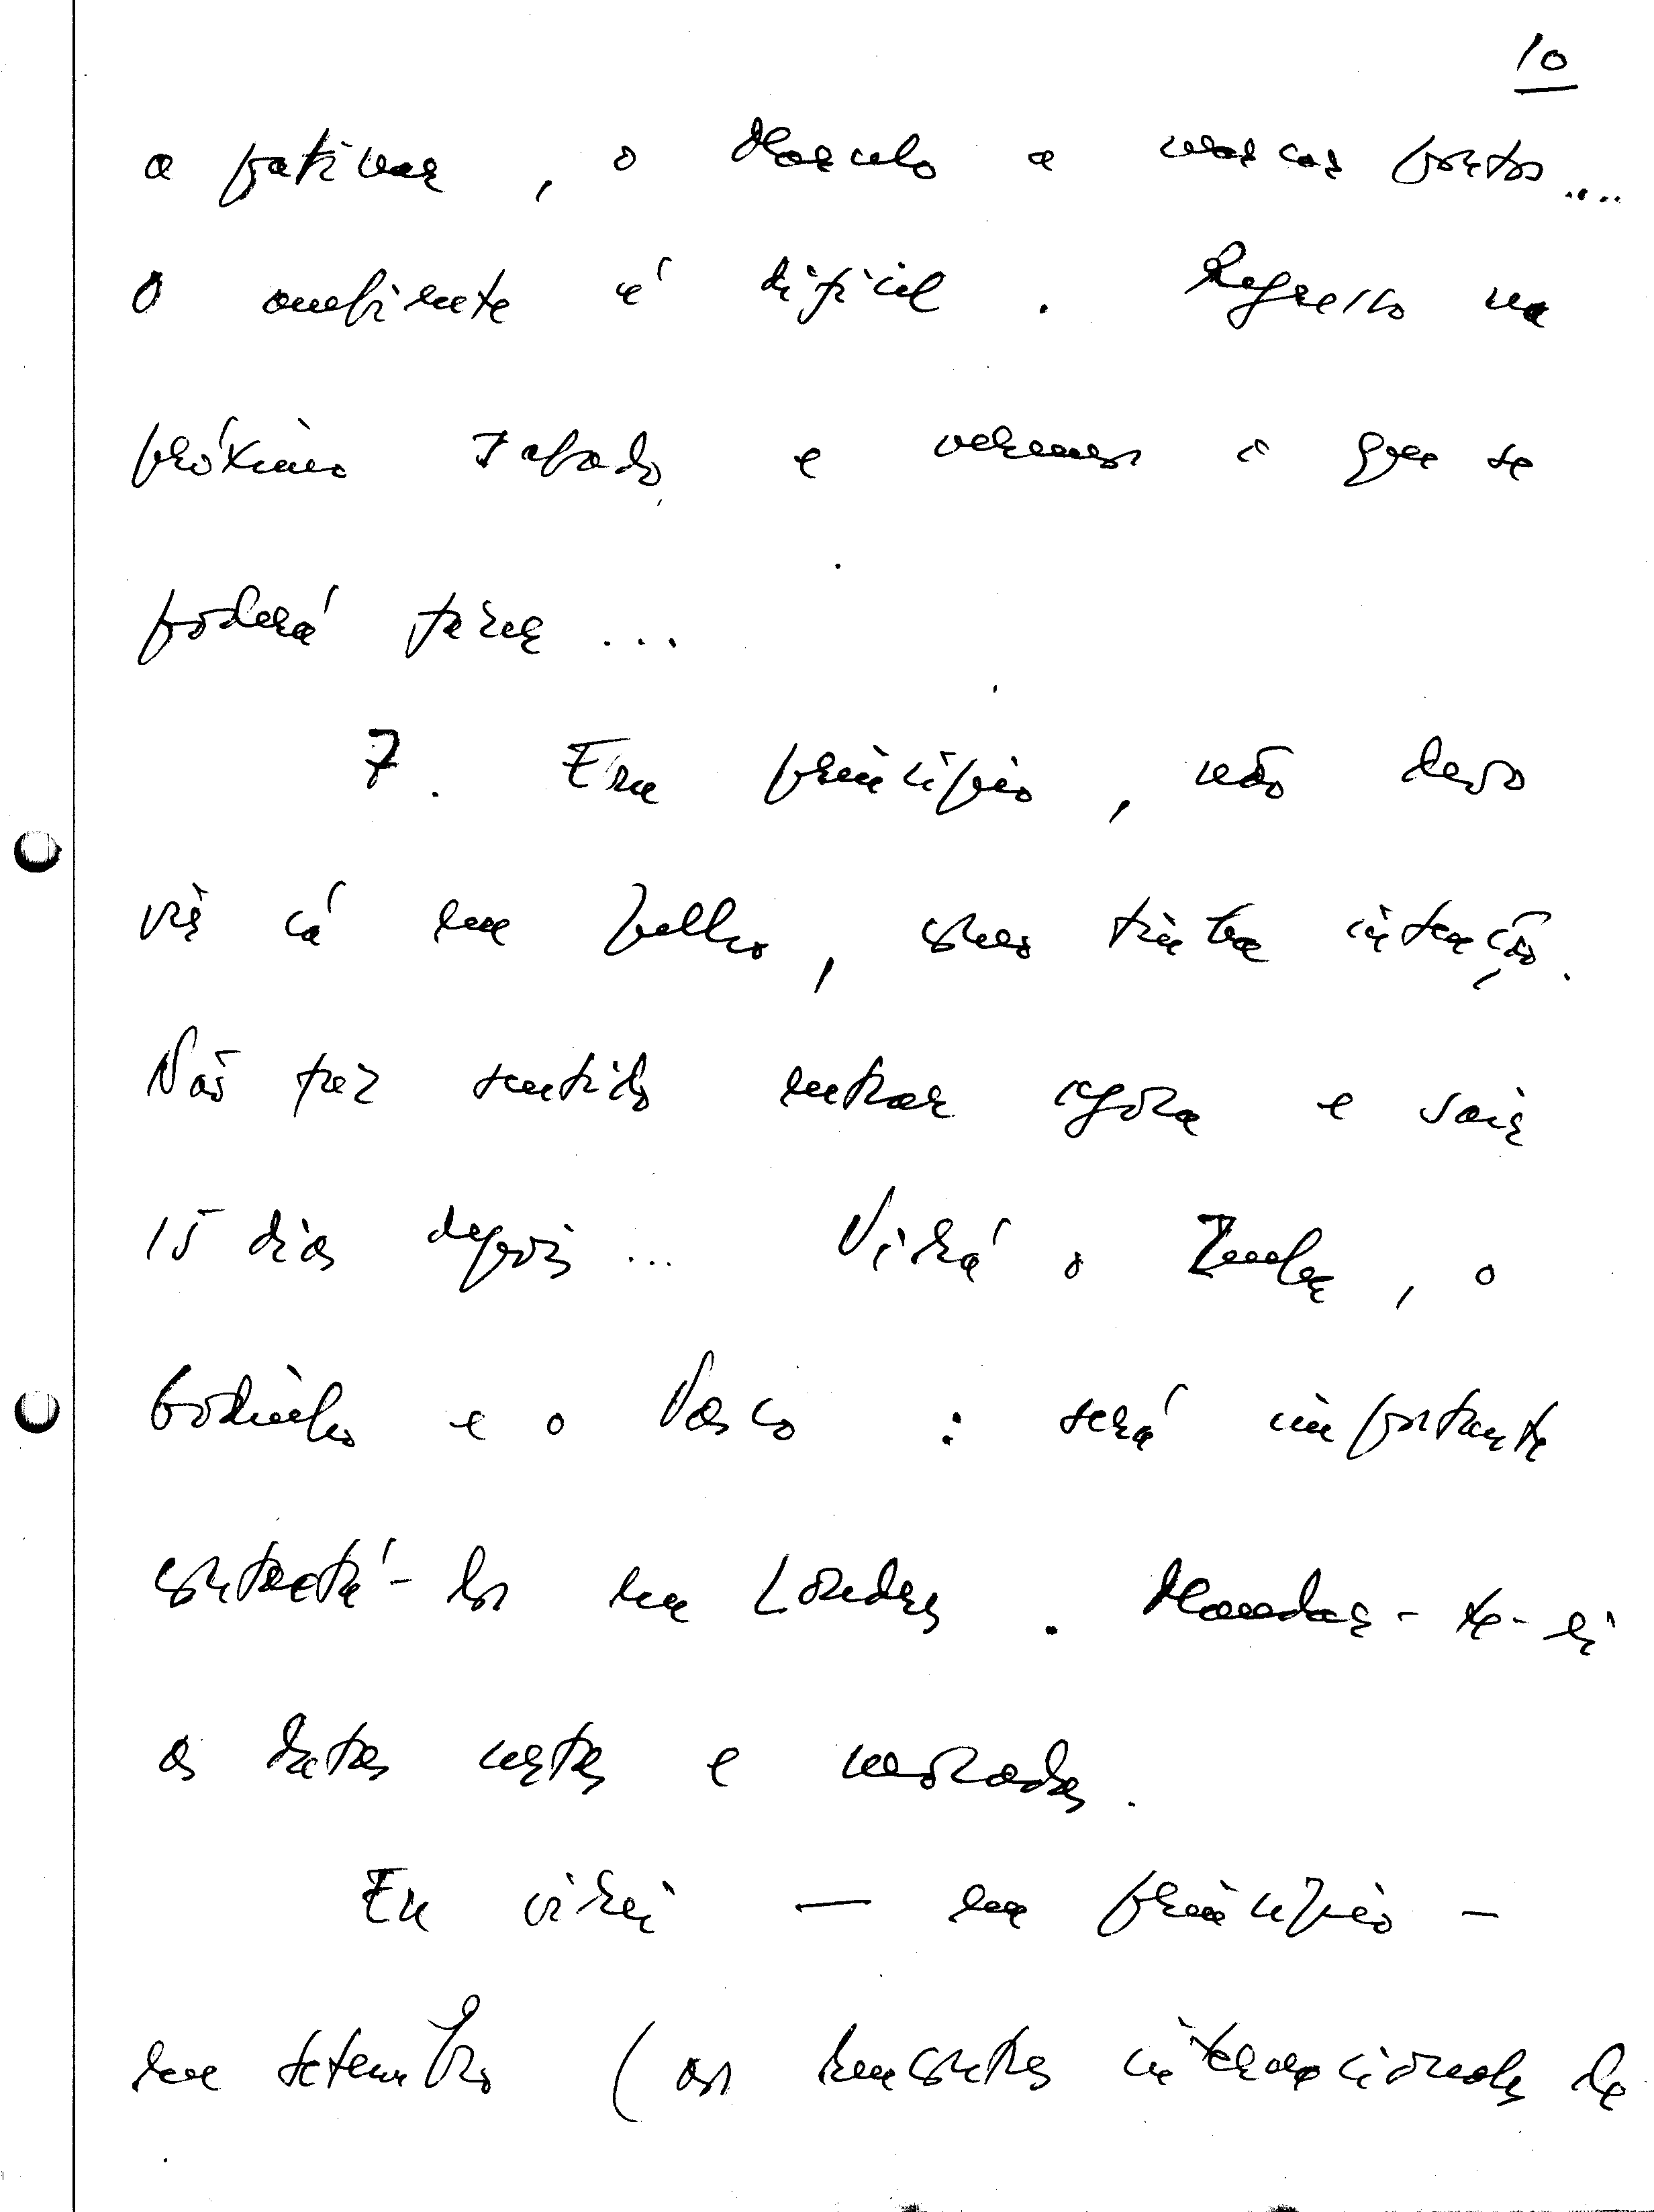 10
a patinar, o Marcelo a marcar pontos....
O ambiente é difícil. Regresso no
próximo sabado, e veremos o que se
poderá fazer ...
7. Em princípio, não devo
vir cá em Julho, como tinha intenção.
Não faz sentido entrar agora e sair
15 dias depois ... Virá o Zenha, o
Godinho e o Vasco : será importante
contactá-los em Londres. Mandar-te-ei
as datas certas e moradas.
Eu virei — em princípio —
em setembro (os encontros internacionais de